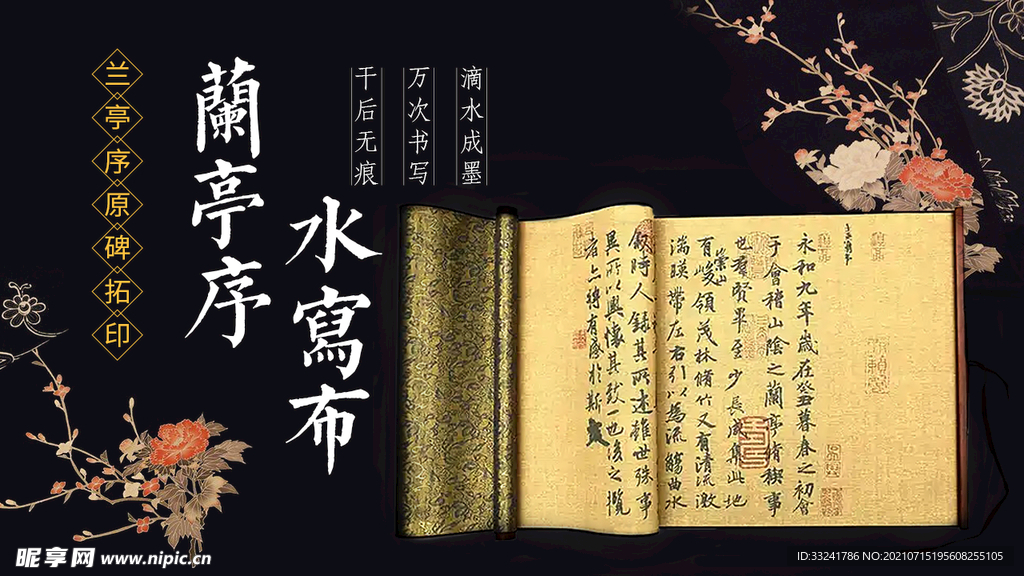 兰亭序原碑拓印
蘭亭序
水寫布
滴水成墨
万次书写
干后无痕
永和九年歲在癸丑暮春之初會
于會稽山陰之蘭亭脩稧事
也羣賢畢至少長咸集此地
有崇山峻領茂林脩竹又有清流激
湍暎帶左右引以為流觴曲水
叙時人錄其所述雖世殊事
異所以興懷其致一也後之攬
者亦將有感於斯文
昵享网 www.nipic.cn
ID:33241786 NO:20210715195608255105